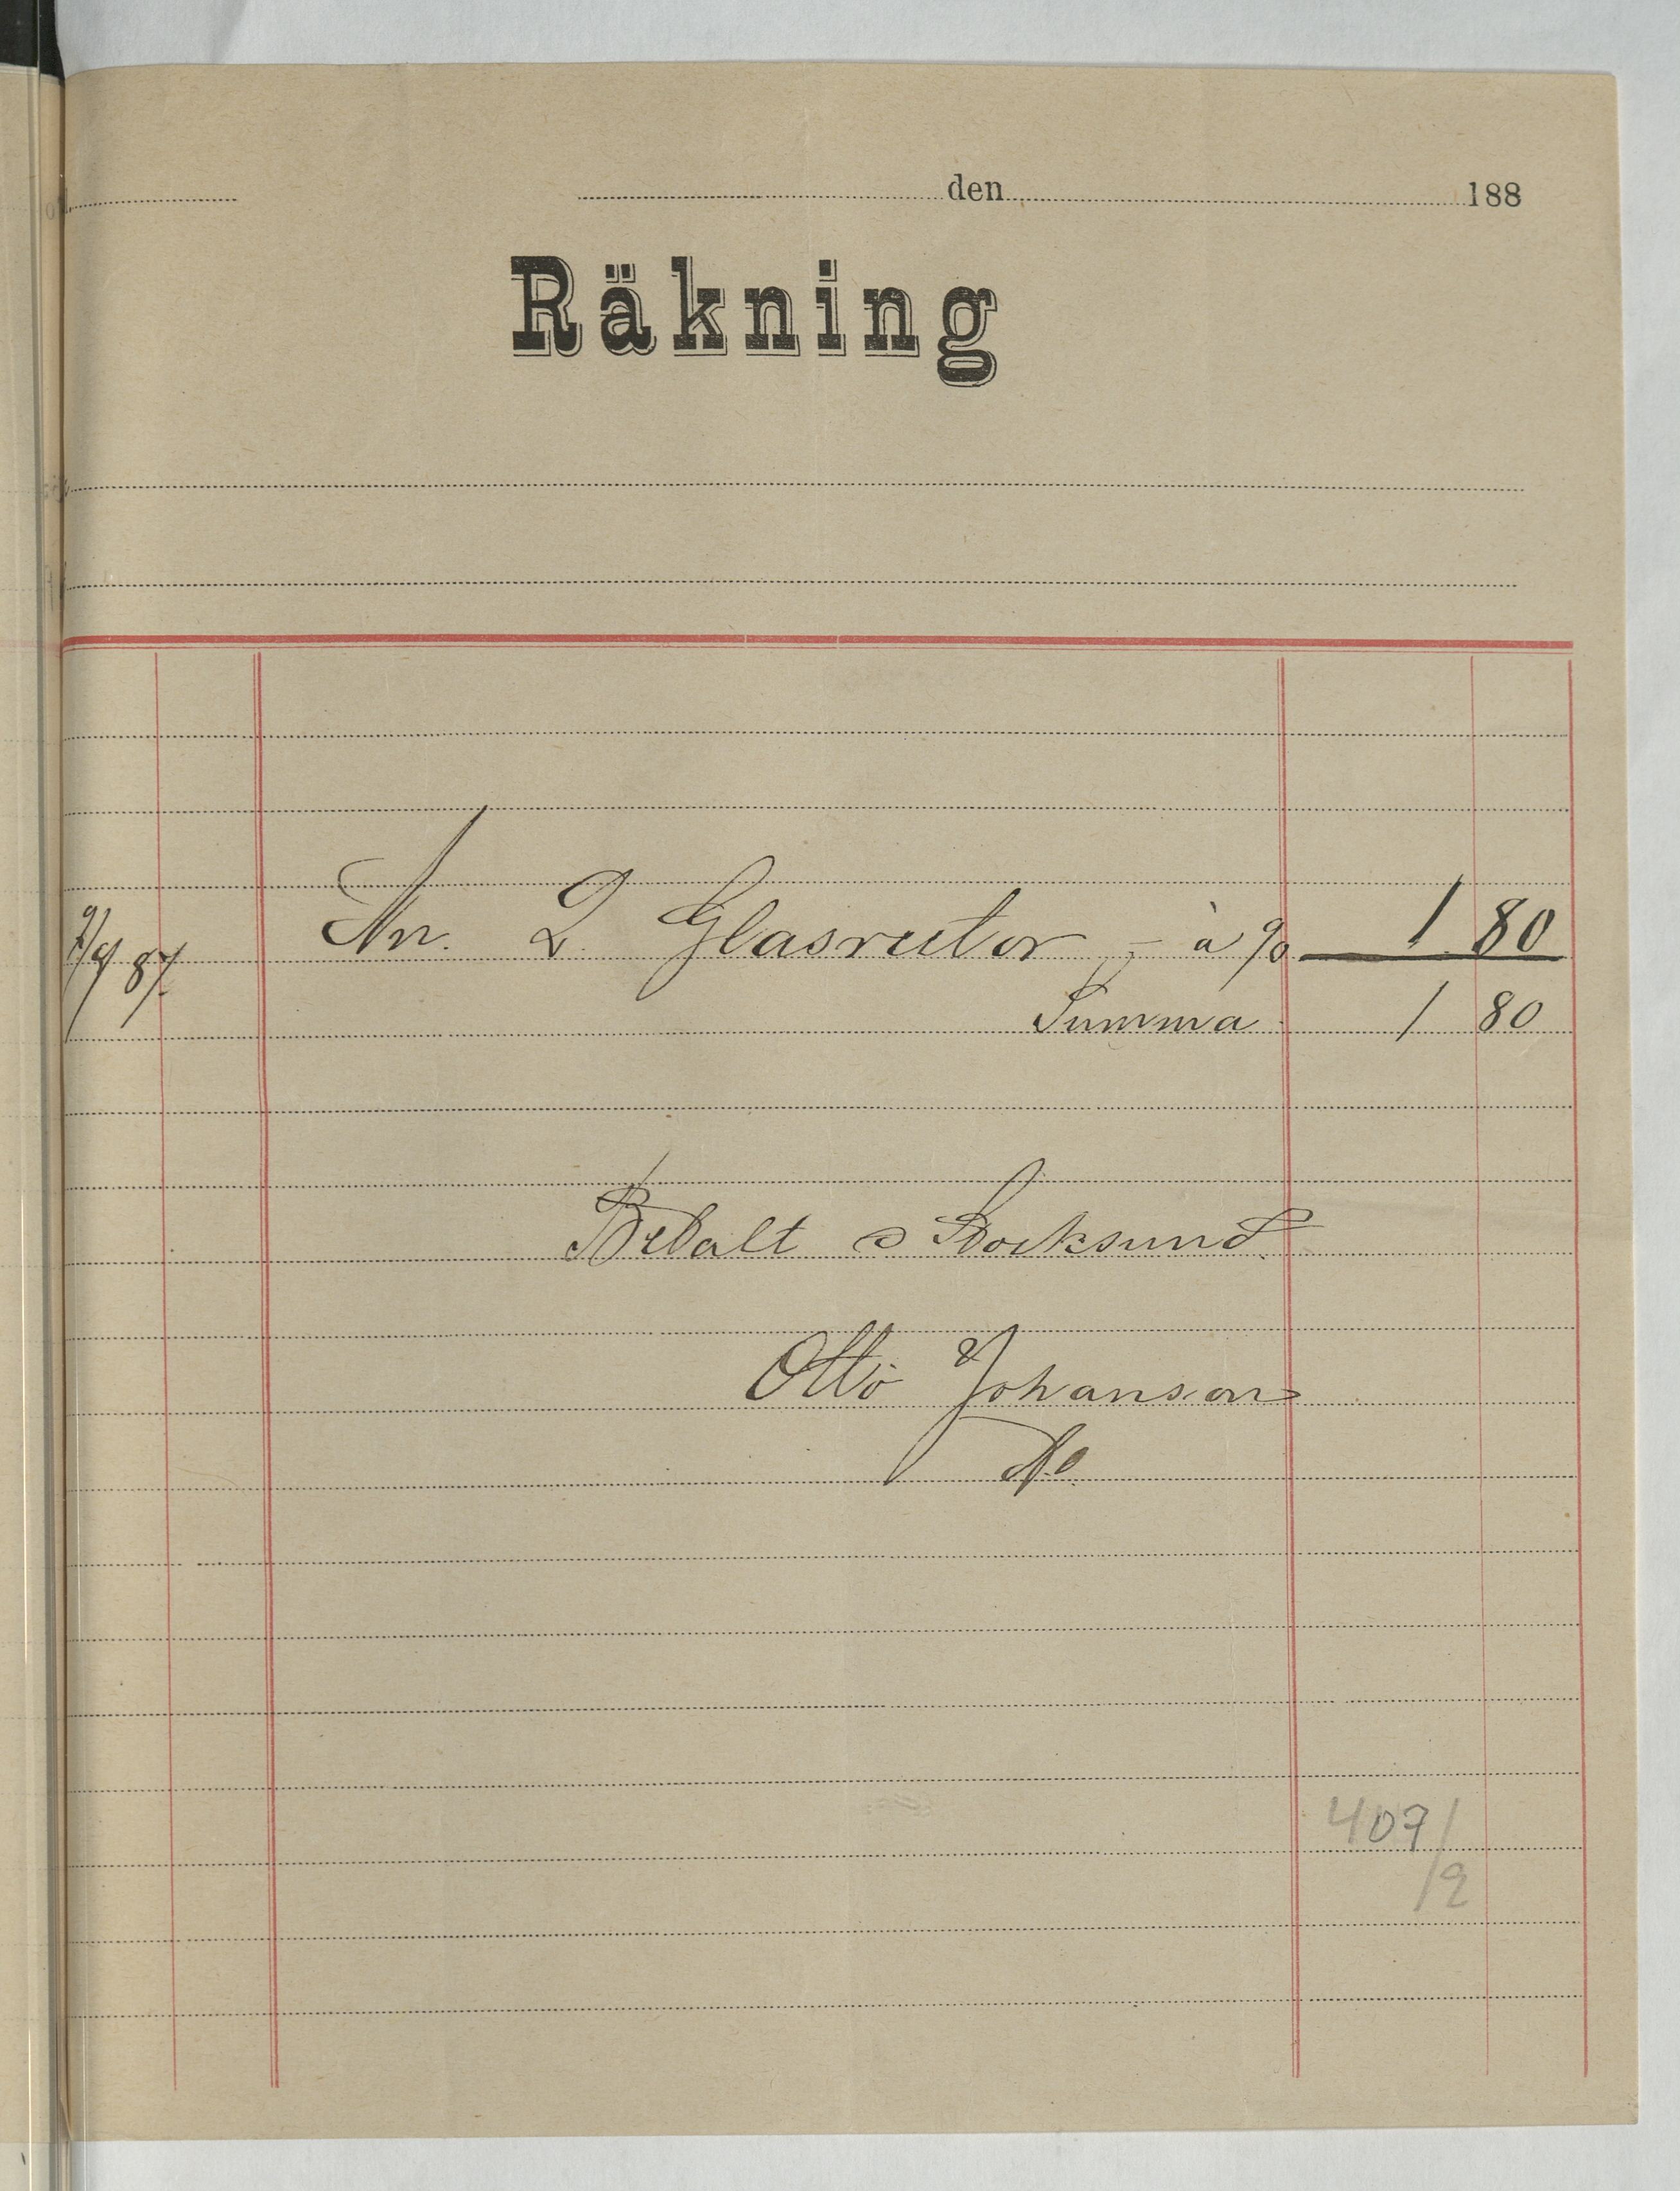 den 188
Räkning
9/9 87. An. 2 Glasrutor - à 90 1 80
Summa 1 80
Betalt Stocksund.
Otto Johanson
407/
/2